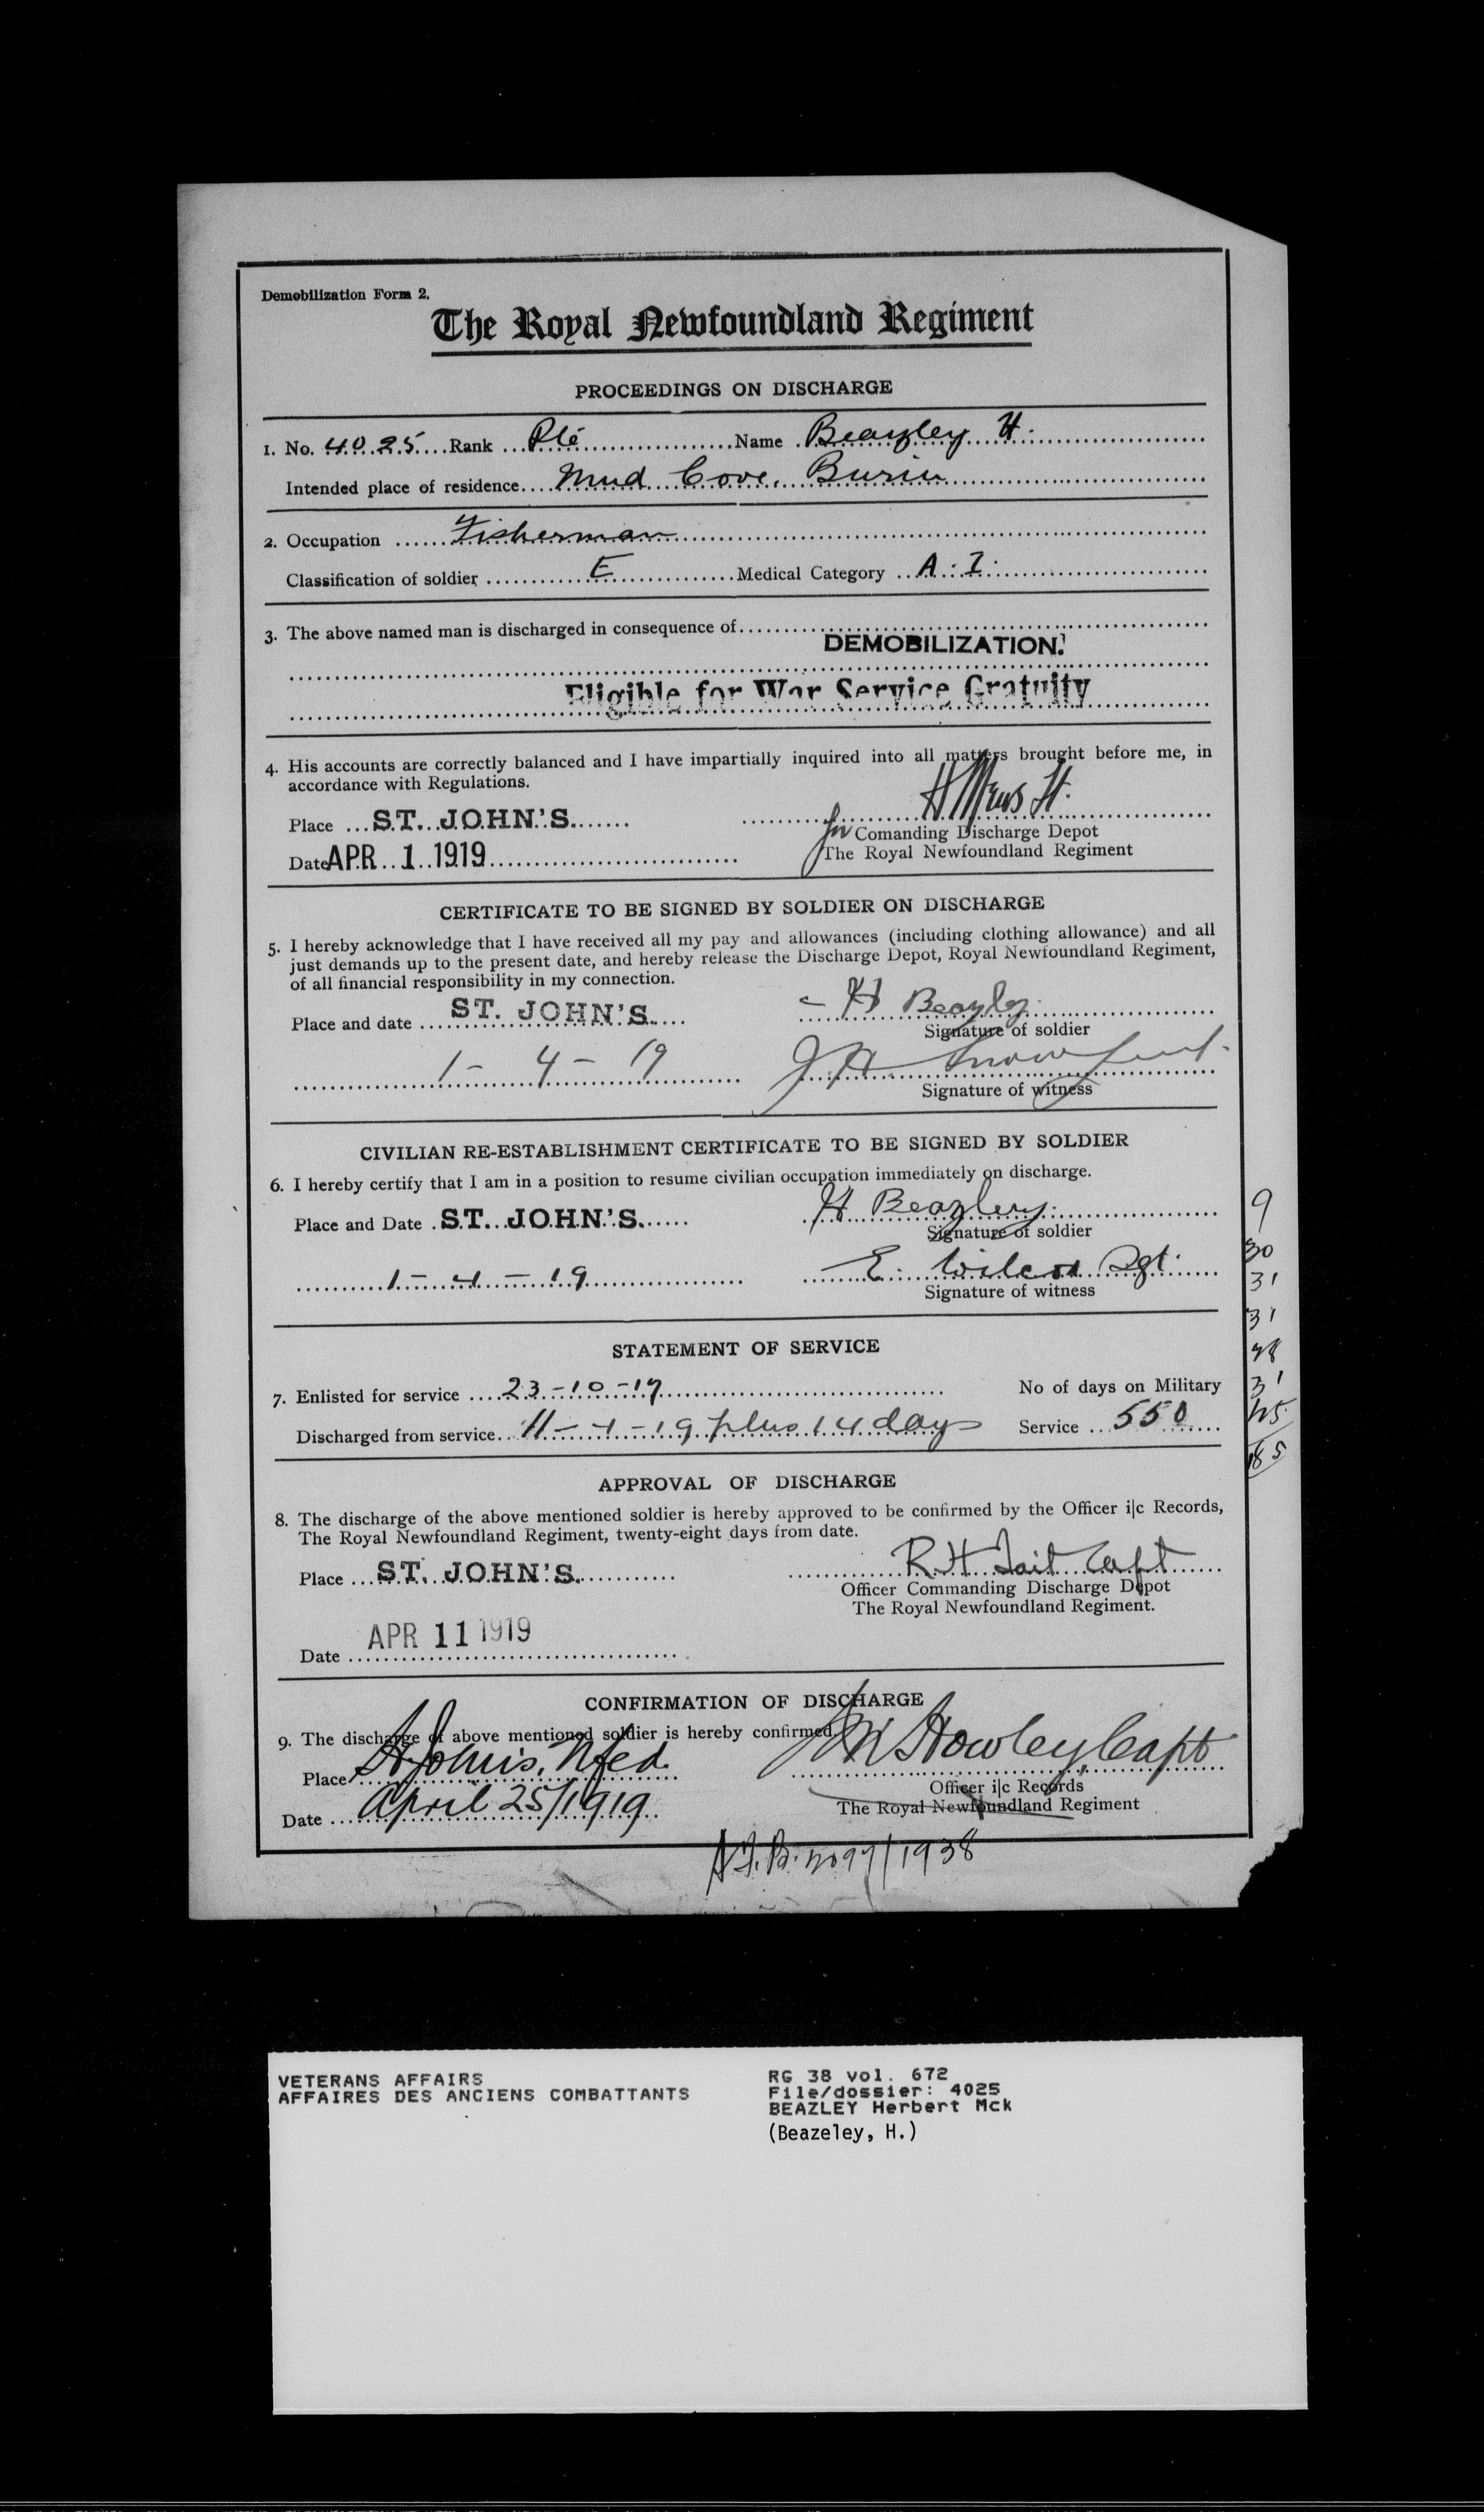 Demobilization Form 2.
The Royal Newfoundland Regiment
PROCEEDINGS ON DISCHARGE
1. No. 4025 Rank Pte Name Beazley H.
Intended place of residence Mud Cove, Burin
2. Occupation Fisherman
Classification of soldier E Medical Category A.I.
3. The above named man is discharged in consequence of
DEMOBILIZATION.
Eligible for War Service Gratuity
4. His accounts are correctly balanced and I have impartially inquired into all matters brought before me, in
accordance with Regulations.
Place ST. JOHN'S. H Mews Lt.
for Comanding Discharge Depot
Date APR 1 1919 The Royal Newfoundland Regiment
CERTIFICATE TO BE SIGNED BY SOLDIER ON DISCHARGE
5. I hereby acknowledge that I have received all my pay and allowances (including clothing allowance) and all
just demands up to the present date, and hereby release the Discharge Depot, Royal Newfoundland Regiment,
of all financial responsibility in my connection.
Place and date ST. JOHN'S. H Beazley
Signature of soldier
1 - 4 - 19
Signature of witness
CIVILIAN RE-ESTABLISHMENT CERTIFICATE TO BE SIGNED BY SOLDIER
6. I hereby certify that I am in a position to resume civilian occupation immediately on discharge.
Place and Date ST. JOHN'S. H Beazley.
Signature of soldier
1 - 4 - 19 E. Wilcox Sgt.
Signature of witness
9
30
31
31
28
31
25
185
STATEMENT OF SERVICE
7. Enlisted for service 23-10-17 No of days on Military
Discharged from service 11-4-19 plus 14 days Service 550
APPROVAL OF DISCHARGE
8. The discharge of the above mentioned soldier is hereby approved to be confirmed by the Officer i|c Records,
The Royal Newfoundland Regiment, twenty-eight days from date.
Place ST. JOHN'S. R H Tait Capt
Officer Commanding Discharge Depot
The Royal Newfoundland Regiment.
APR 11 1919
Date
CONFIRMATION OF DISCHARGE
9. The discharge of above mentioned soldier is hereby confirmed.
Place St John's, Nfld. Howley, Capt
Officer i|c Records
Date April 25/1919 The Royal Newfoundland Regiment
/1938
VETERANS AFFAIRS
AFFAIRES DES ANCIENS COMBATTANTS
RG 38 vol. 672
File/dossier: 4025
BEAZLEY Herbert Mck
(Beazeley, H.)